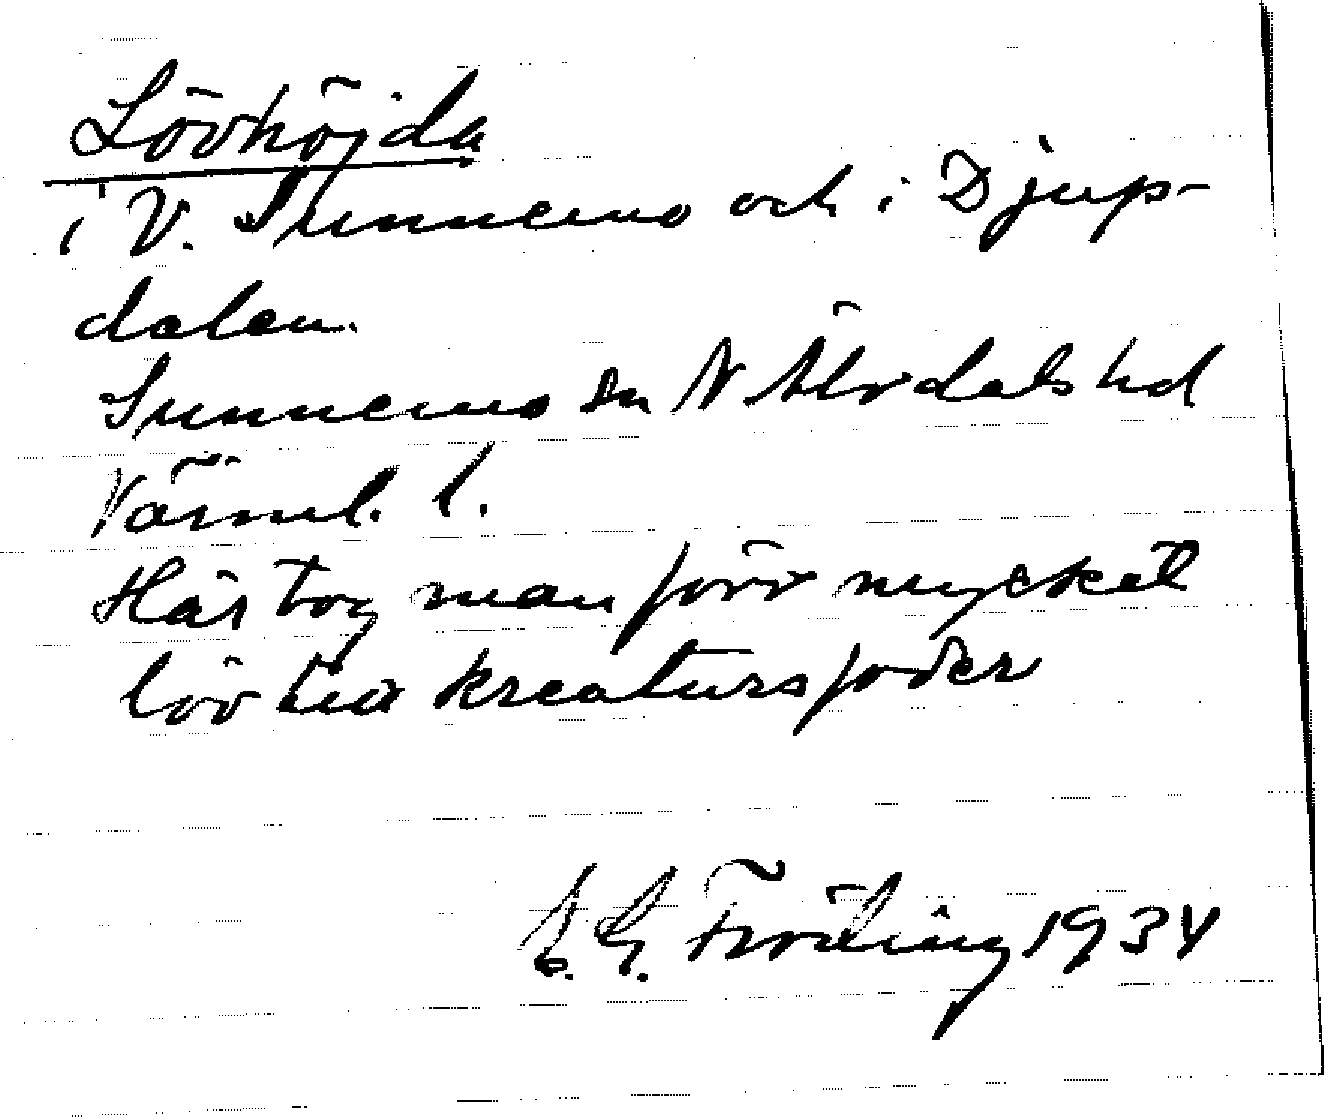 Lövhöjda
i V. Sunnemo och i Djup-
dalen.
Sunnemo sn N Älvdals hd
Värml. l.
Här tog man förr mycket
löv till kreatursfoder
G. Fröding 1934